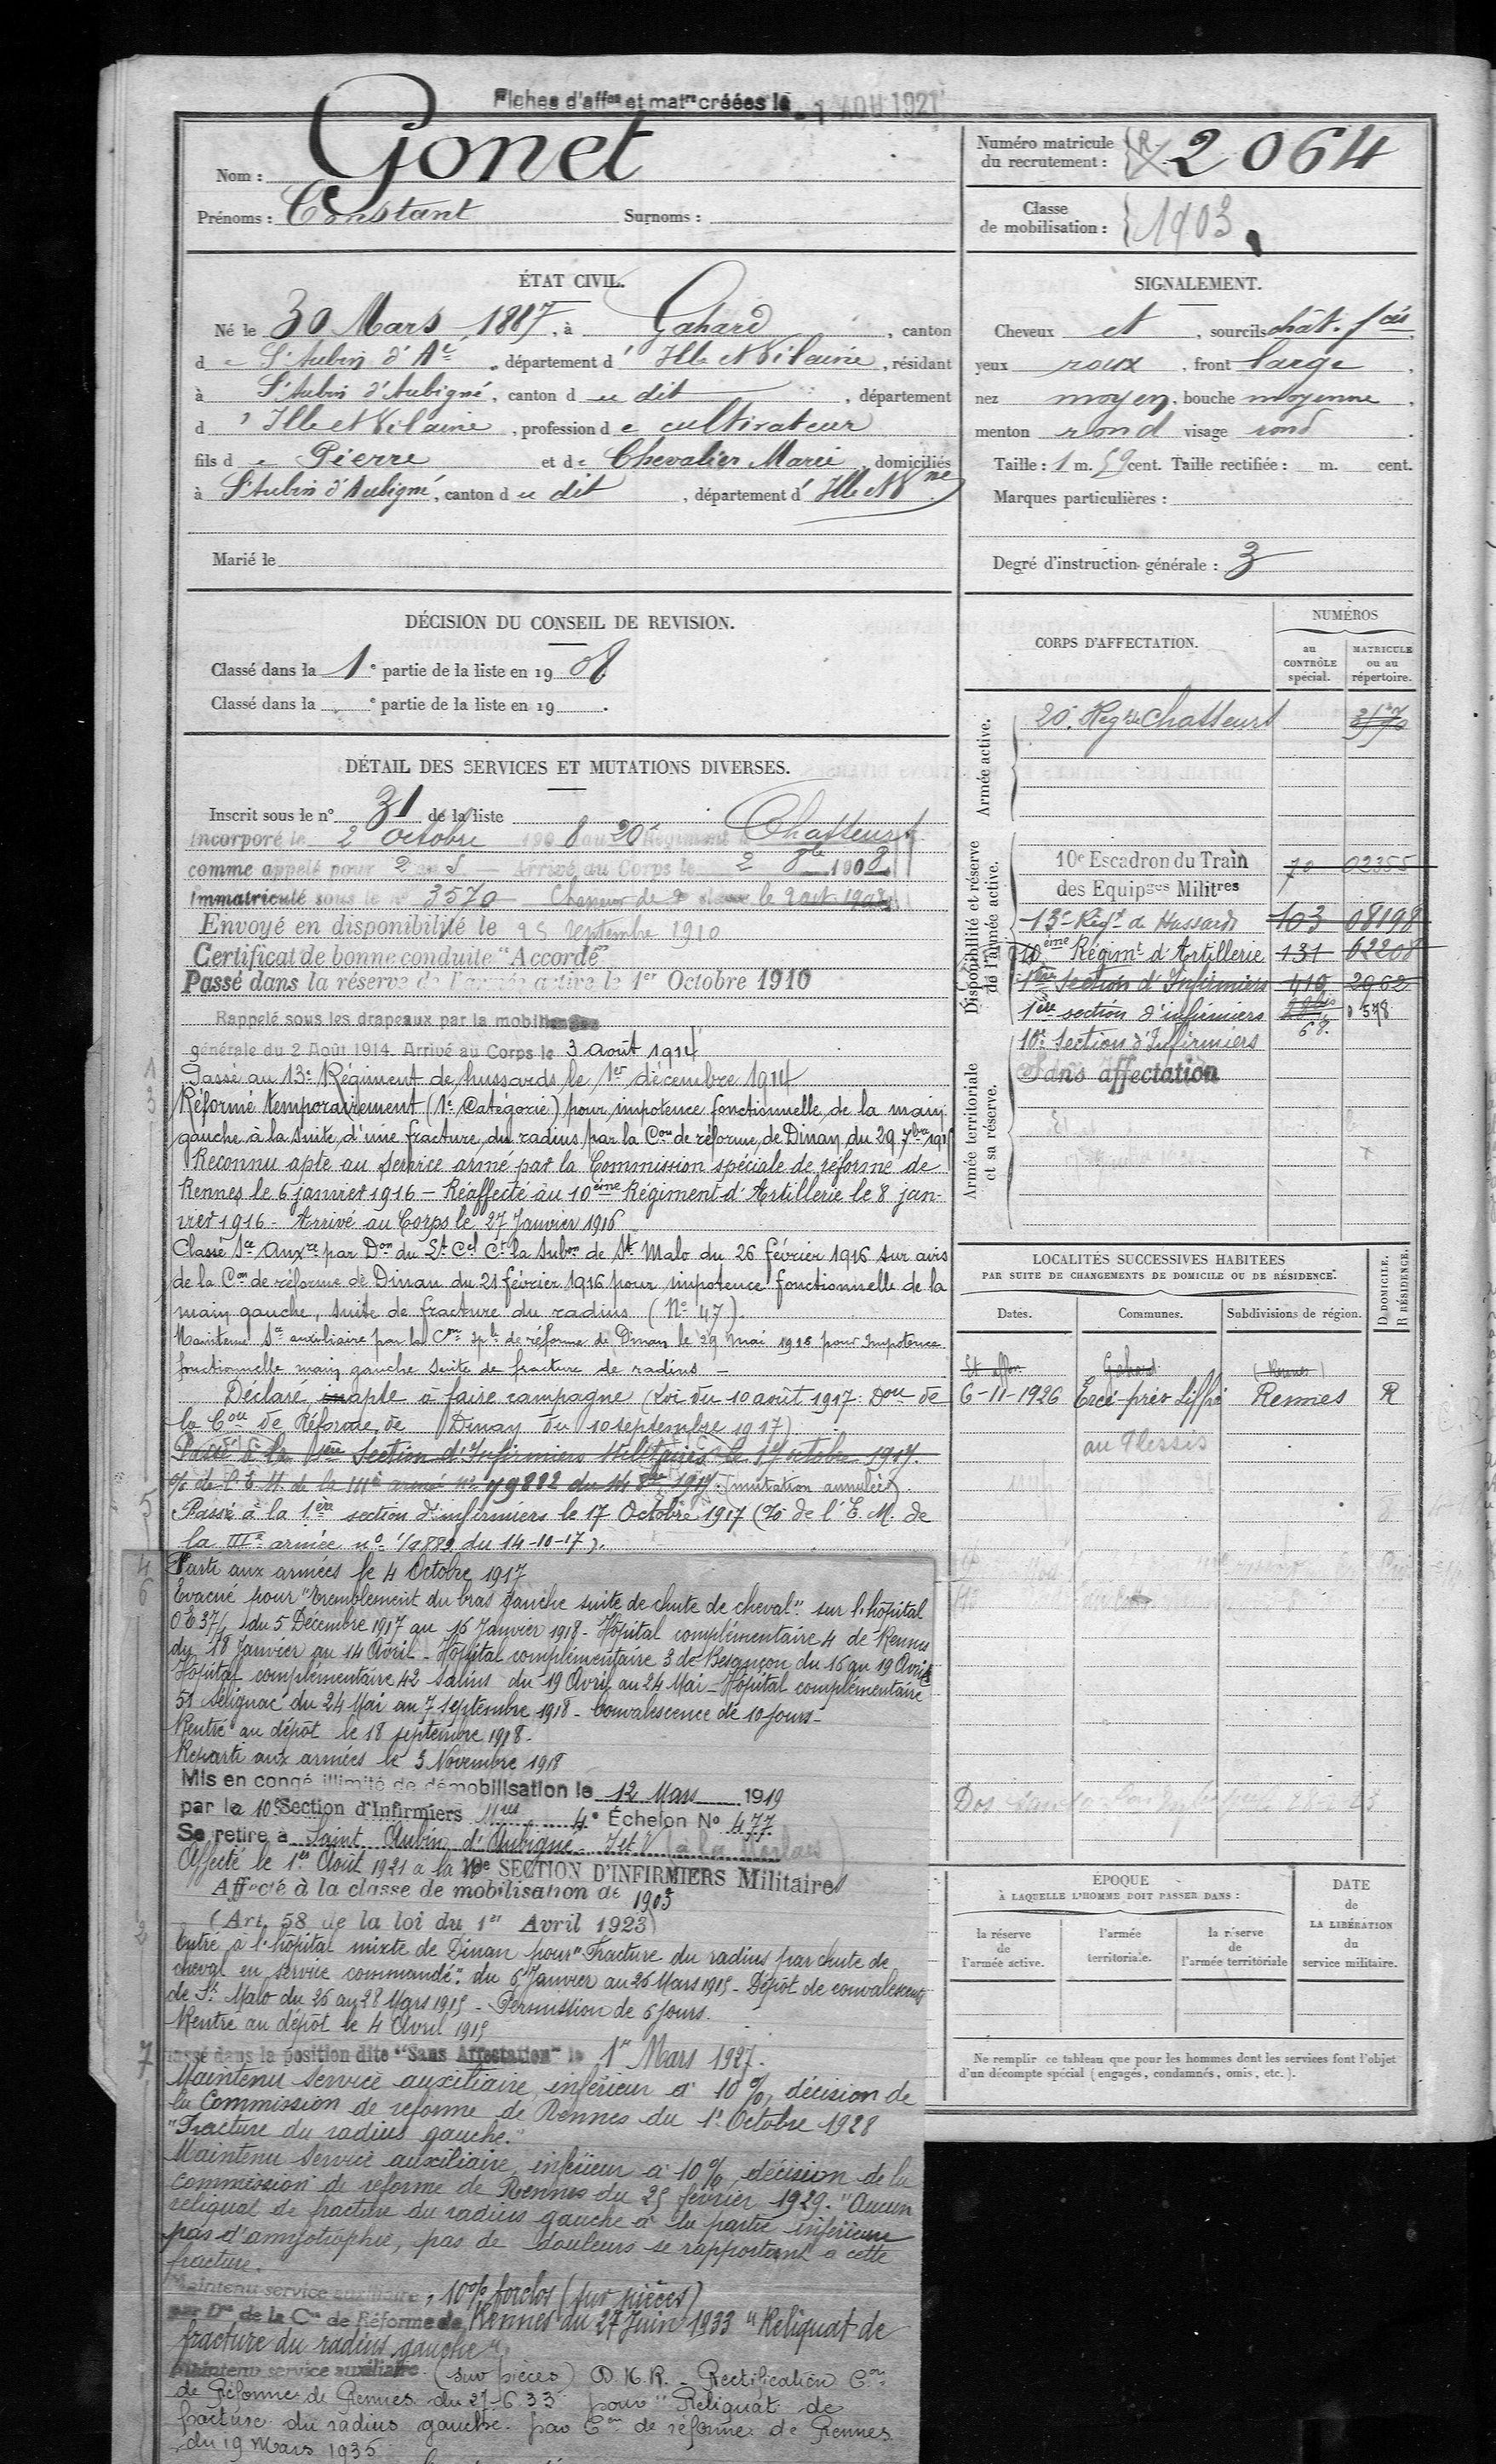 Fiches d'affon et matre créées le 1 AOU 1921
Nom : Gonet
Prénoms : Constant Surnoms :
Numéro matricule du recrutement : R 2064
Classe de mobilisation : 1903
ÉTAT CIVIL.
Né le 30 Mars 1887, à Gahard, canton
de St Aubin d'Aé, département d'Ille et Vilaine, résidant
à St Aubin d'Aubigné, canton du dit, département
d'Ille et Vilaine, profession de cultivateur
fils de Pierre et de Chevalier Marie domiciliés
à St Aubin d'Aubigné, canton du dit, département d'Ille et Vne
Marié le
SIGNALEMENT.
Cheveux et, sourcils chât. fcés,
yeux roux, front large,
nez moyen, bouche moyenne,
menton rond visage rond.
Taille : 1 m. 59 cent. Taille rectifiée : m. cent.
Marques particulières :
Degré d'instruction générale : 3
DÉCISION DU CONSEIL DE REVISION.
Classé dans la 1e partie de la liste en 1908
Classé dans la e partie de la liste en 19 .
DÉTAIL DES SERVICES ET MUTATIONS DIVERSES.
Inscrit sous le n° 31 de la liste
Incorporé le 2 octobre 1908 au 20e Régiment de Chasseurs
comme appelé pour 2 ans Arrivé au Corps le 2 8bre 1908
Immatriculé sous le n° 3570 Chasseur de 2e classe le 2 oct. 1908
Envoyé en disponibilité le 25 septembre 1910
Certificat de bonne conduite "Accordé"
Passé dans la réserve de l'armée active le 1er Octobre 1910
Rappelé sous les drapeaux par la mobilisation
générale du 2 Août 1914. Arrivé au Corps le 3 août 1914
Passé au 13e Régiment de hussards le 1er décembre 1914
Réformé temporairement (1e Catégorie) pour impotence fonctionnelle de la main
gauche à la suite d'une fracture du radius par la Con de réforme de Dinan du 29 7bre 1915
Reconnu apte au service armé par la Commission spéciale de réforme de
Rennes le 6 janvier 1916 - Réaffecté au 10ème Régiment d'Artillerie le 8 jan-
vier 1916 - Arrivé au Corps le 27 Janvier 1916
Classé Sce Auxre par Don du Lt Cel Ct la Subon de St Malo du 26 février 1916 sur avis
de la Con de réforme de Dinan du 21 février 1916 pour impotence fonctionnelle de la
main gauche, suite de fracture du radius (N° 47).
Maintenu Sce auxiliaire par la Con sple de réforme de Dinan le 29 mai 1916 pour Impotence
fonctionnelle main gauche suite de fracture de radius -
Déclaré inapte à faire campagne (Loi du 10 août 1917. Don de
la Con de Réforme de Dinan du 10 septembre 1917)
Passé à la 1ère Section d'Infirmiers Militaires le 17 octobre 1917.
% de l'E. M. de la IIIe armée n° 79882 du 14 8bre 1917. (mutation annulée).
Passé à la 1ère section d'infirmiers le 17 Octobre 1917 (% de l'E. M. de
la IIIe armée n° 79882 du 14-10-17).
Parti aux armées le 4 Octobre 1917
Evacué pour "tremblement du bras gauche suite de chute de cheval" sur l'hôpital
O E 37/4 du 5 Décembre 1917 au 16 Janvier 1918 - Hôpital complémentaire 4 de Rennes
du 18 Janvier au 14 Avril - Hôpital complémentaire 3 de Besançon du 16 au 19 Avril
Hôpital complémentaire 42 Salins du 19 Avril au 24 Mai - Hôpital complémentaire
51 Sélignac du 24 Mai au 7 Septembre 1918 - Convalescence de 10 jours -
Rentré au dépôt le 18 septembre 1918 -
Reparti aux armées le 3 Novembre 1918
Mis en congé illimité de démobilisation le 12 Mars 1919
par la 10e Section d'Infirmiers Mres 4e Échelon N° 477
Se retire à Saint Aubin d'Aubigné I et V
Affecté le 1er Août 1921 à la 10e SECTION D'INFIRMIERS Militaires
Affecté à la classe de mobilisation de 1903
(Art. 58 de la loi du 1er Avril 1923)
Entré à l'hôpital mixte de Dinan pour "Fracture du radius par chute de
cheval en service commandé" du 6 Janvier au 26 Mars 1915 - Dépôt de convalescents
de St Malo du 26 au 28 Mars 1915 - Permission de 6 jours.
Rentré au dépôt le 4 Avril 1915
Passé dans la position dite "Sans Affectation" le 1er Mars 1927.
Maintenu service auxiliaire, inférieur à 10%, décision de
la Commission de réforme de Rennes du 1er Octobre 1928
"Fracture du radius gauche."
Maintenu service auxiliaire, inférieur à 10%, décision de la
commission de réforme de Rennes du 25 février 1929. "Aucun
reliquat de fracture du radius gauche à la partie inférieure
pas d'amyotrophie, pas de douleurs se rapportant à cette
fracture.
Maintenu service auxiliaire, 10% forclos (sur pièces)
par Don de la Con de Réforme de Rennes du 27 Juin 1933 "Reliquat de
fracture du radius gauche".
Maintenu service auxiliaire (sur pièces) D. K. R. - Rectification Con
de Réforme de Rennes du 27-6-33 pour "Reliquat de
fracture du radius gauche. par Con de réforme de Rennes
du 19 Mars 1935
CORPS D'AFFECTATION.
NUMÉROS
au CONTRÔLE spécial.
MATRICULE ou au répertoire.
Armée active.
20e Regt de Chasseurs 3570
Disponibilité et réserve de l'armée active.
10e Escadron du Train des Equipges Militres 70 02355
13e Régt de Hussards 103 08198
10ème Régimt d'Artillerie 131 02208
1ère Section d'Infirmiers 410 2962
1ère section d'infirmiers 68. 578
Armée territoriale et sa réserve.
10e Section d'Infirmiers
Sans affectation
LOCALITÉS SUCCESSIVES HABITÉES
PAR SUITE DE CHANGEMENTS DE DOMICILE OU DE RÉSIDENCE.
Dates. Communes. Subdivisions de région. D DOMICILE. R RÉSIDENCE.
Gahard (Rennes)
6-11-1926 Ercé près Liffré Rennes R
au Plessis
ÉPOQUE
À LAQUELLE L'HOMME DOIT PASSER DANS :
la réserve de l'armée active.
l'armée territoriale.
la réserve de l'armée territoriale
DATE de LA LIBÉRATION du service militaire.
Ne remplir ce tableau que pour les hommes dont les services font l'objet
d'un décompte spécial (engagés, condamnés, omis, etc.).